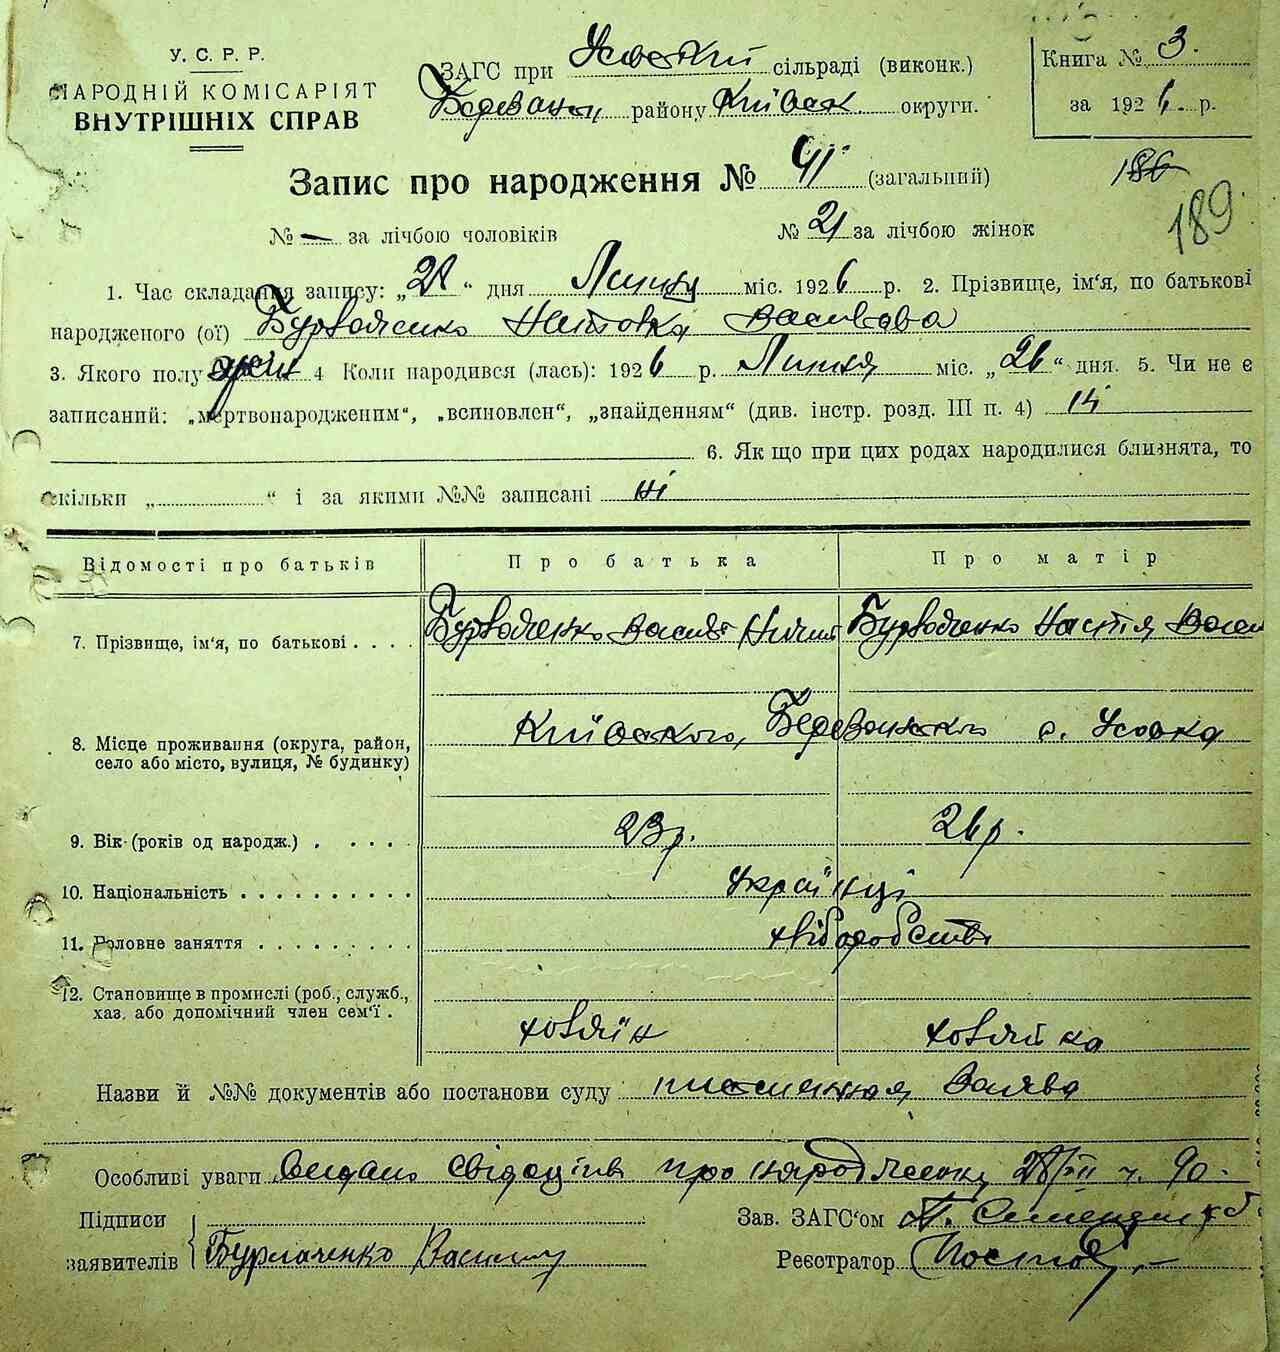 У. С. Р. Р.
НАРОДНІЙ КОМІСАРІЯТ
ВНУТРІШНІХ СПРАВ
ЗАГС при Усовский сільраді (виконк.)
району Київськ округи.
Книга № 3.
за 1926 р.
Запис про народження № 41 (загальний)
186
189.
№ — за лічбою чоловіків № 21 за лічбою жінок
1. Час складання запису: „28“ дня Липня міс. 1926 р. 2. Прізвище, ім‘я, по батькові
народженого (ої) Бурлаченко
3. Якого полу жін 4 Коли народився (лась): 1926 р. Липня міс. „26“ дня. 5. Чи не є
записаний: „мертвонародженим“, „всиновлен“, „знайденням“ (див. інстр. розд. III п. 4) ні
6. Як що при цих родах народилися близнята, то
скільки „ “ і за якими №№ записані ні
Відомості про батьків Про батька Про матір
7. Прізвище, ім‘я, по батькові . . . . Бурлаченко Василь Бурлаченко Настія Васил
8. Місце проживання (округа, район, село або місто, вулиця, № будинку) Київского, Березанского с. Усовка
9. Вік (років од народж.) . . . . . 23 р. 26 р.
10. Національність . . . . . . . . . . українці
11. Головне заняття . . . . . . . . . хліборобство
12. Становище в промислі (роб., служб., хаз. або допомічний член сем‘ї . хозяїн хозяйка
Назви й №№ документів або постанови суду письменная заява
Особливі уваги про народження 28/VII ч. 90.
Підписи Зав. ЗАГС‘ом
заявителів Бурлаченко Василь Реєстратор